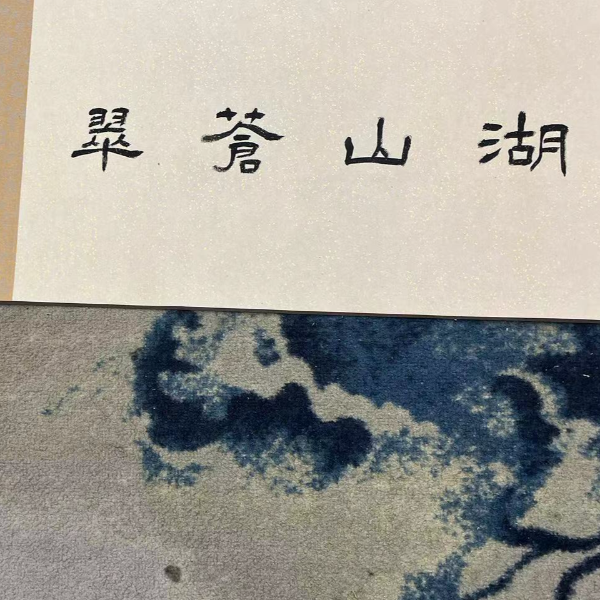 湖山蒼翠